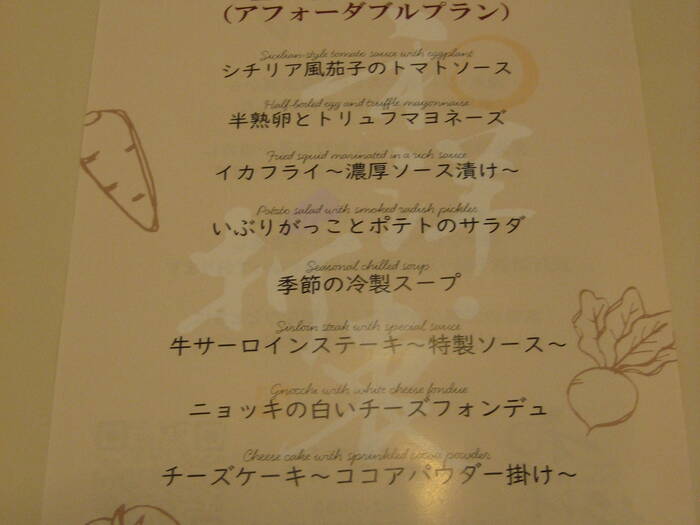 (アフォーダブルプラン)
Sicilian-style tomato sauce with eggplant
シチリア風茄子のトマトソース
Half-boiled egg and truffle mayonnaise
半熟卵とトリュフマヨネーズ
Fried squid marinated in a rich sauce
イカフライ～濃厚ソース漬け～
Potato salad with smoked radish pickles
いぶりがっことポテトのサラダ
Seasonal chilled soup
季節の冷製スープ
Sirloin steak with special sauce
牛サーロインステーキ～特製ソース～
Gnocchi with white cheese fondue
ニョッキの白いチーズフォンデュ
Cheese cake with sprinkled cocoa powder
チーズケーキ～ココアパウダー掛け～